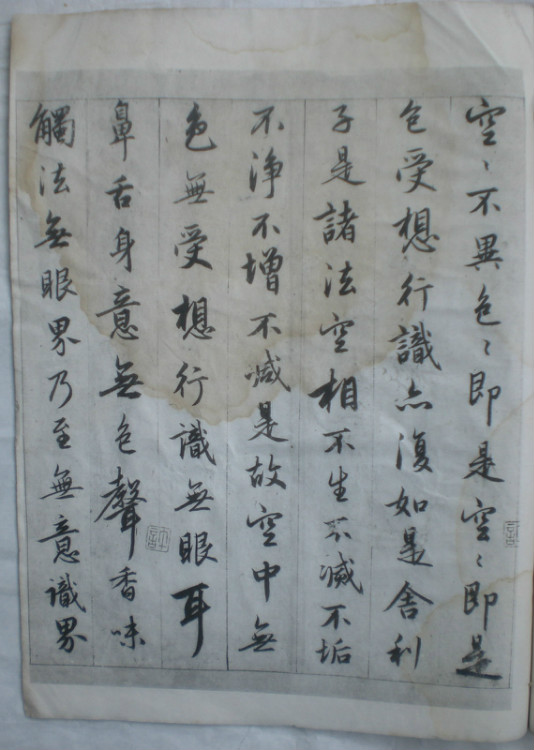 空〻不異色〻即是空〻即是
色受想行識亦復如是舍利
子是諸法空相不生不滅不垢
不淨不增不減是故空中無
色無受想行識無眼耳
鼻舌身意無色聲香味
觸法無眼界乃至無意識界